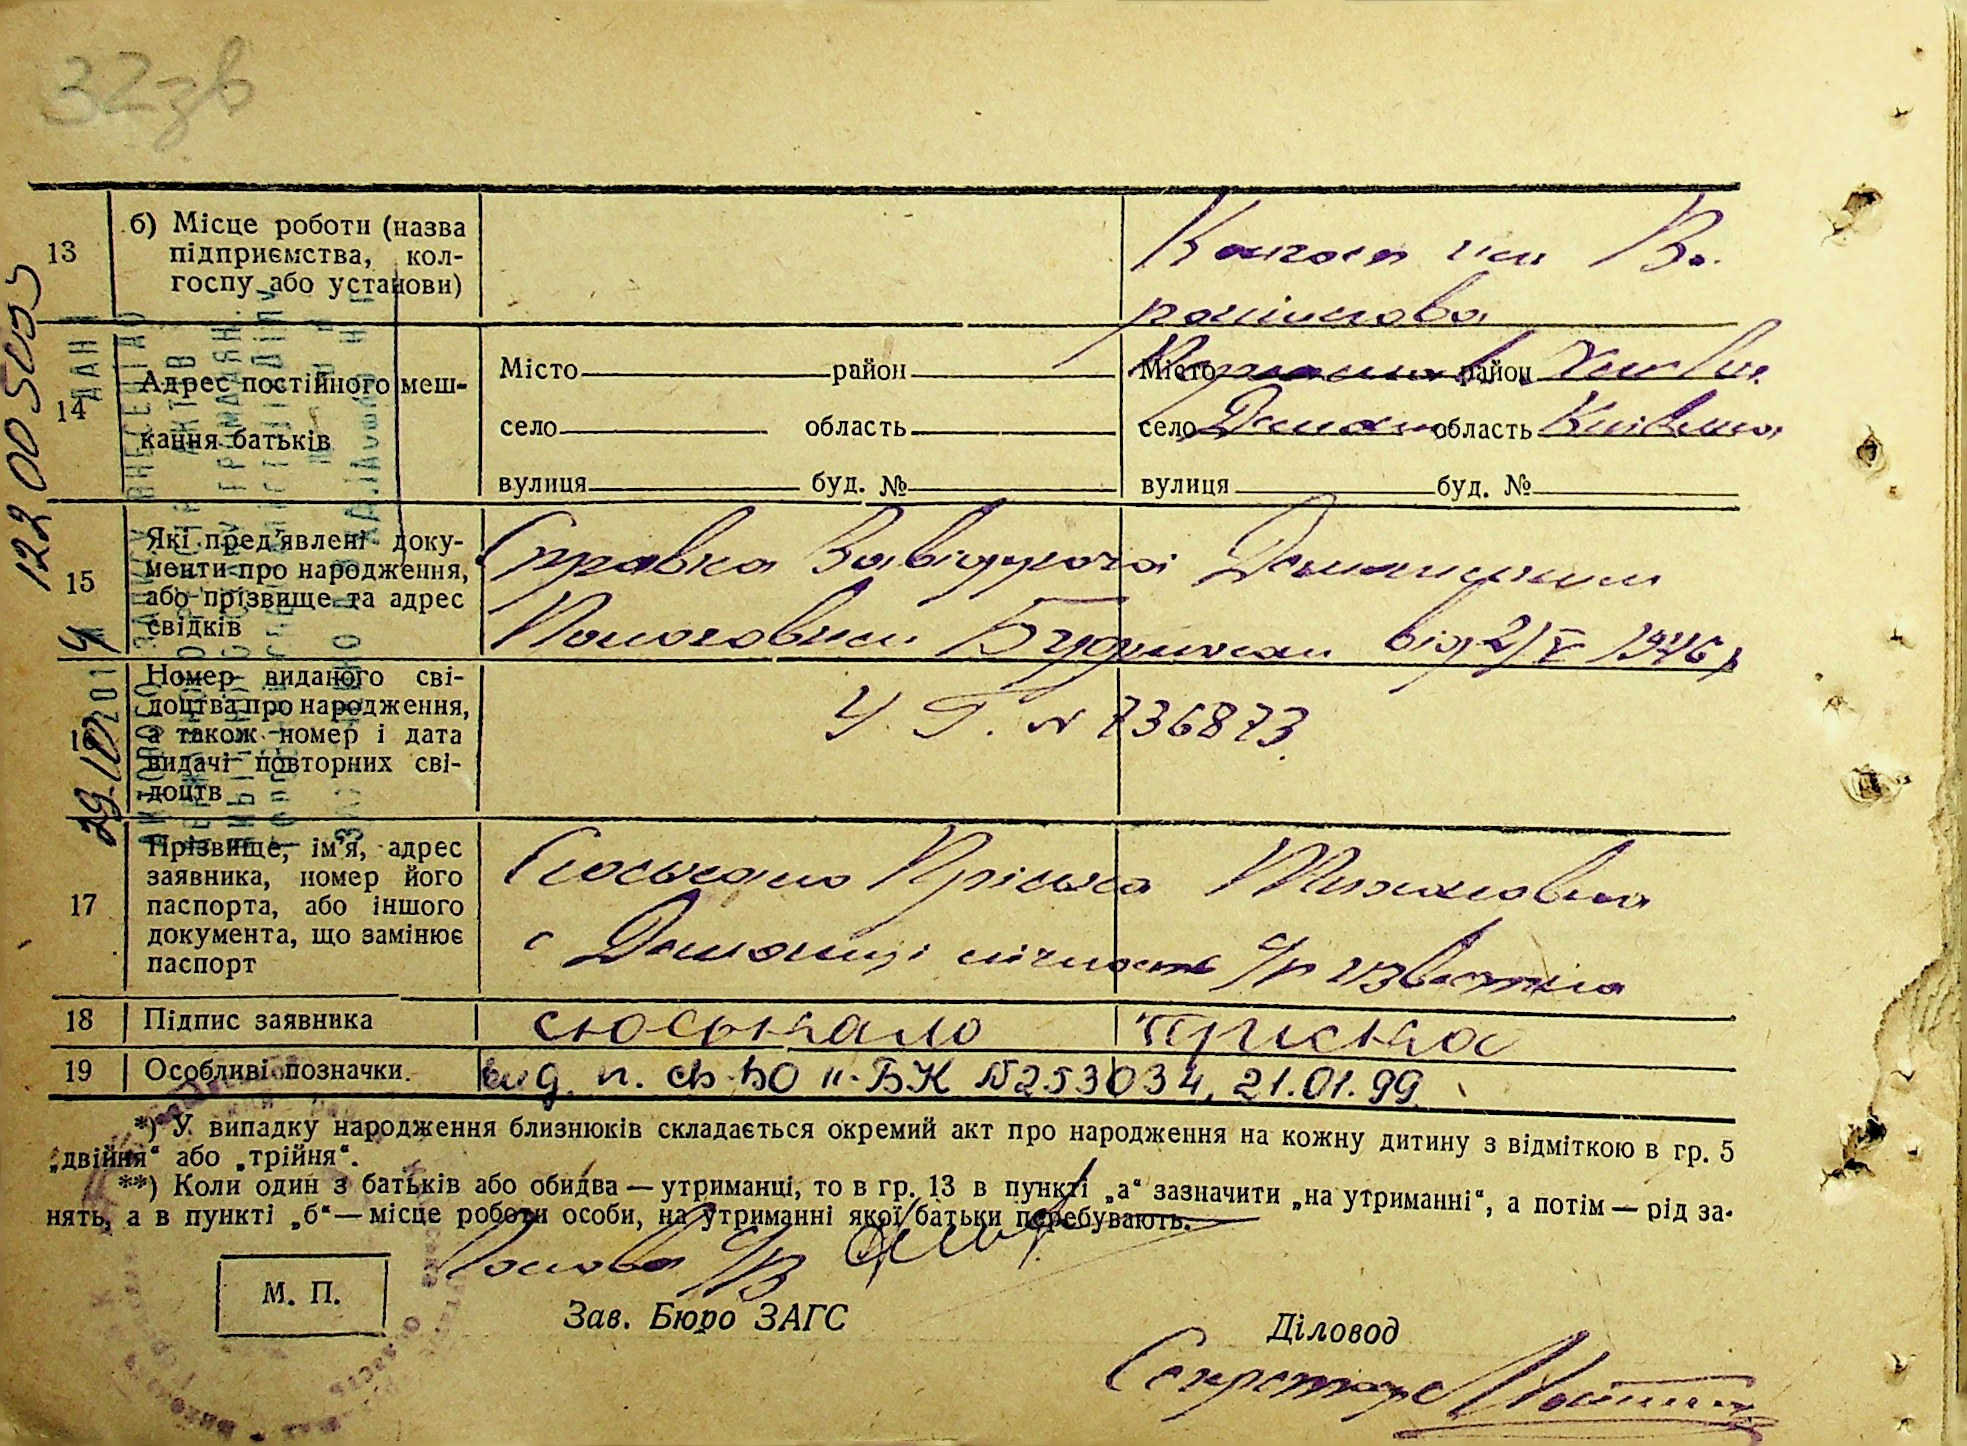 32зв
13
б) Місце роботи (назва
підприємства, кол-
госпу або установи)
Колгосп им Во
рошилова
14
Адрес постійного меш-
кання батьків
Місто район
село область
вулиця буд. №
Місто район
село область Київська
вулиця буд. №
15
Які пред'явлені доку-
менти про народження,
або прізвище та адрес
свідків
Справка Завідуючої
Пологовим Будинком від 2/V 1946 р
16
Номер виданого сві-
доцтва про народження,
а також номер і дата
видачі повторних сві-
доцтв
У. Г. № 736873
17
Прізвище, ім'я, адрес
заявника, номер його
паспорта, або іншого
документа, що замінює
паспорт
Сюськало Пріська
с лічность с/р известна
18
Підпис заявника
сюськало Приска
19
Особливі позначки.
вид. п. св-во II-БК №253034, 21.01.99
*) У випадку народження близнюків складається окремий акт про народження на кожну дитину з відміткою в гр. 5
„двійня“ або „трійня“.
**) Коли один з батьків або обидва — утриманці, то в гр. 13 в пункті „а“ зазначити „на утриманні“, а потім — рід за-
нять, а в пункті „б“ — місце роботи особи, на утриманні якої батьки перебувають.
Голова с/р
М. П.
Зав. Бюро ЗАГС
Діловод
Секретарь
122005035